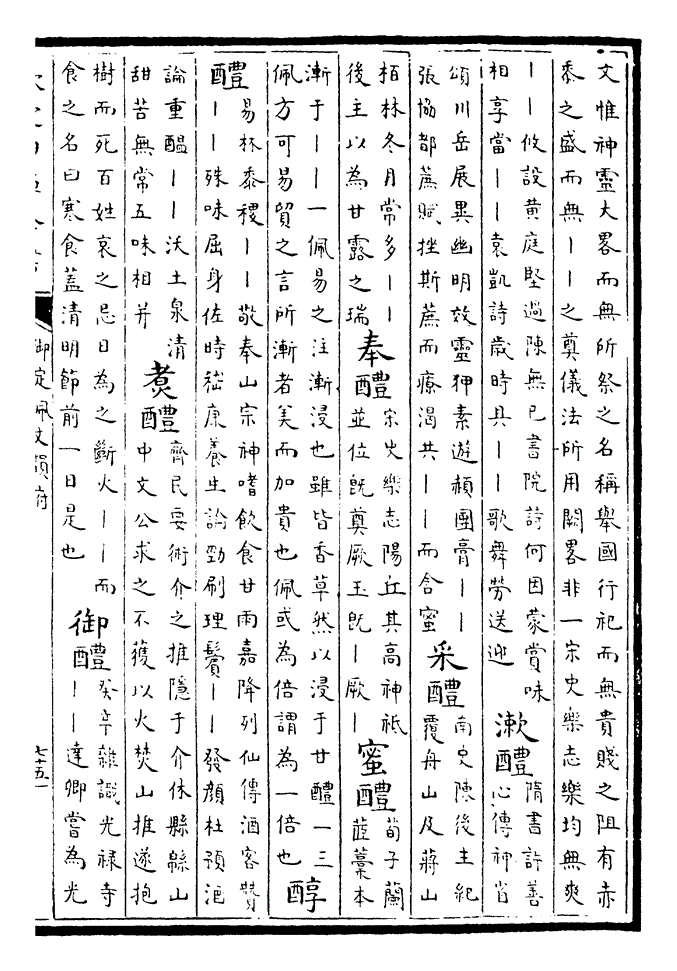 文惟神靈大畧而無所祭之名稱舉國行祀而無貴賤之阻有赤
黍之盛而無丨丨之奠儀法所用闕畧非一宋史樂志樂均無爽
丨丨攸設黄庭堅過陳無已書院詩何因蒙賞味
相享當丨丨袁凱詩歲時具丨丨歌舞勞送迎
漱醴
隋書許善
心傳神雀
頌川岳展異幽明效靈狎素遊頳團膏丨丨
張協都蔗賦挫斯蔗而療渴共丨丨而含蜜
采醴
南史陳後主紀
覆舟山及蔣山
栢林冬月常多丨丨
後主以為甘露之瑞
奉醴
宋史樂志陽丘其高神祗
並位旣奠厥玉旣丨厥丨
蜜醴
荀子蘭
茝藁本
漸于丨丨一佩易之注漸浸也雖皆香草然以浸于甘醴一三
佩方可易買之言所漸者美而加貴也佩或為倍謂為一倍也
醇
醴
易林黍稷丨丨敬奉山宗神嗜飲食甘雨嘉降列仙傳酒客贊
丨丨殊味屈身佐時嵇康養生論勁刷理鬢丨丨發顔杜預沍
論重醖丨丨沃土泉清
甜苦無常五味相并
煑醴
齊民要術介之推隱于介休縣緜山
中文公求之不獲以火焚山推遂抱
樹而死百姓哀之忌日為之斷火丨丨而
食之名曰寒食葢清明節前一日是也
御醴
癸辛雜識光禄寺
丨丨達卿嘗為光
御定佩文韻府
七十五一